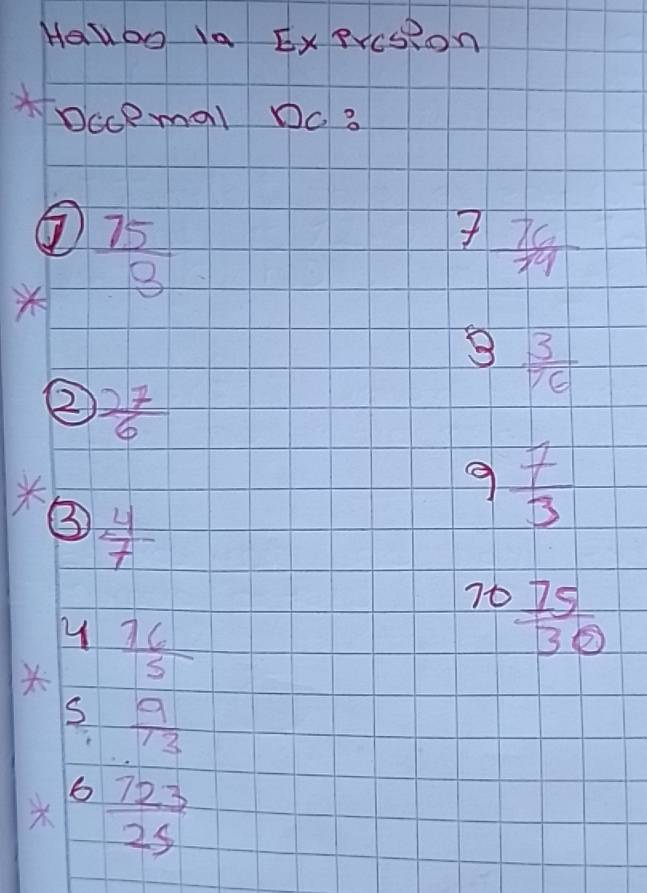 Hallao la Expresion
* Decimal De:
① 15/8
*
② 27/6
*
③ 4/7
4 16/5
*
5 9/13
6 123/25
*
7 16/14
8 3/16
9 7/3
10 15/30